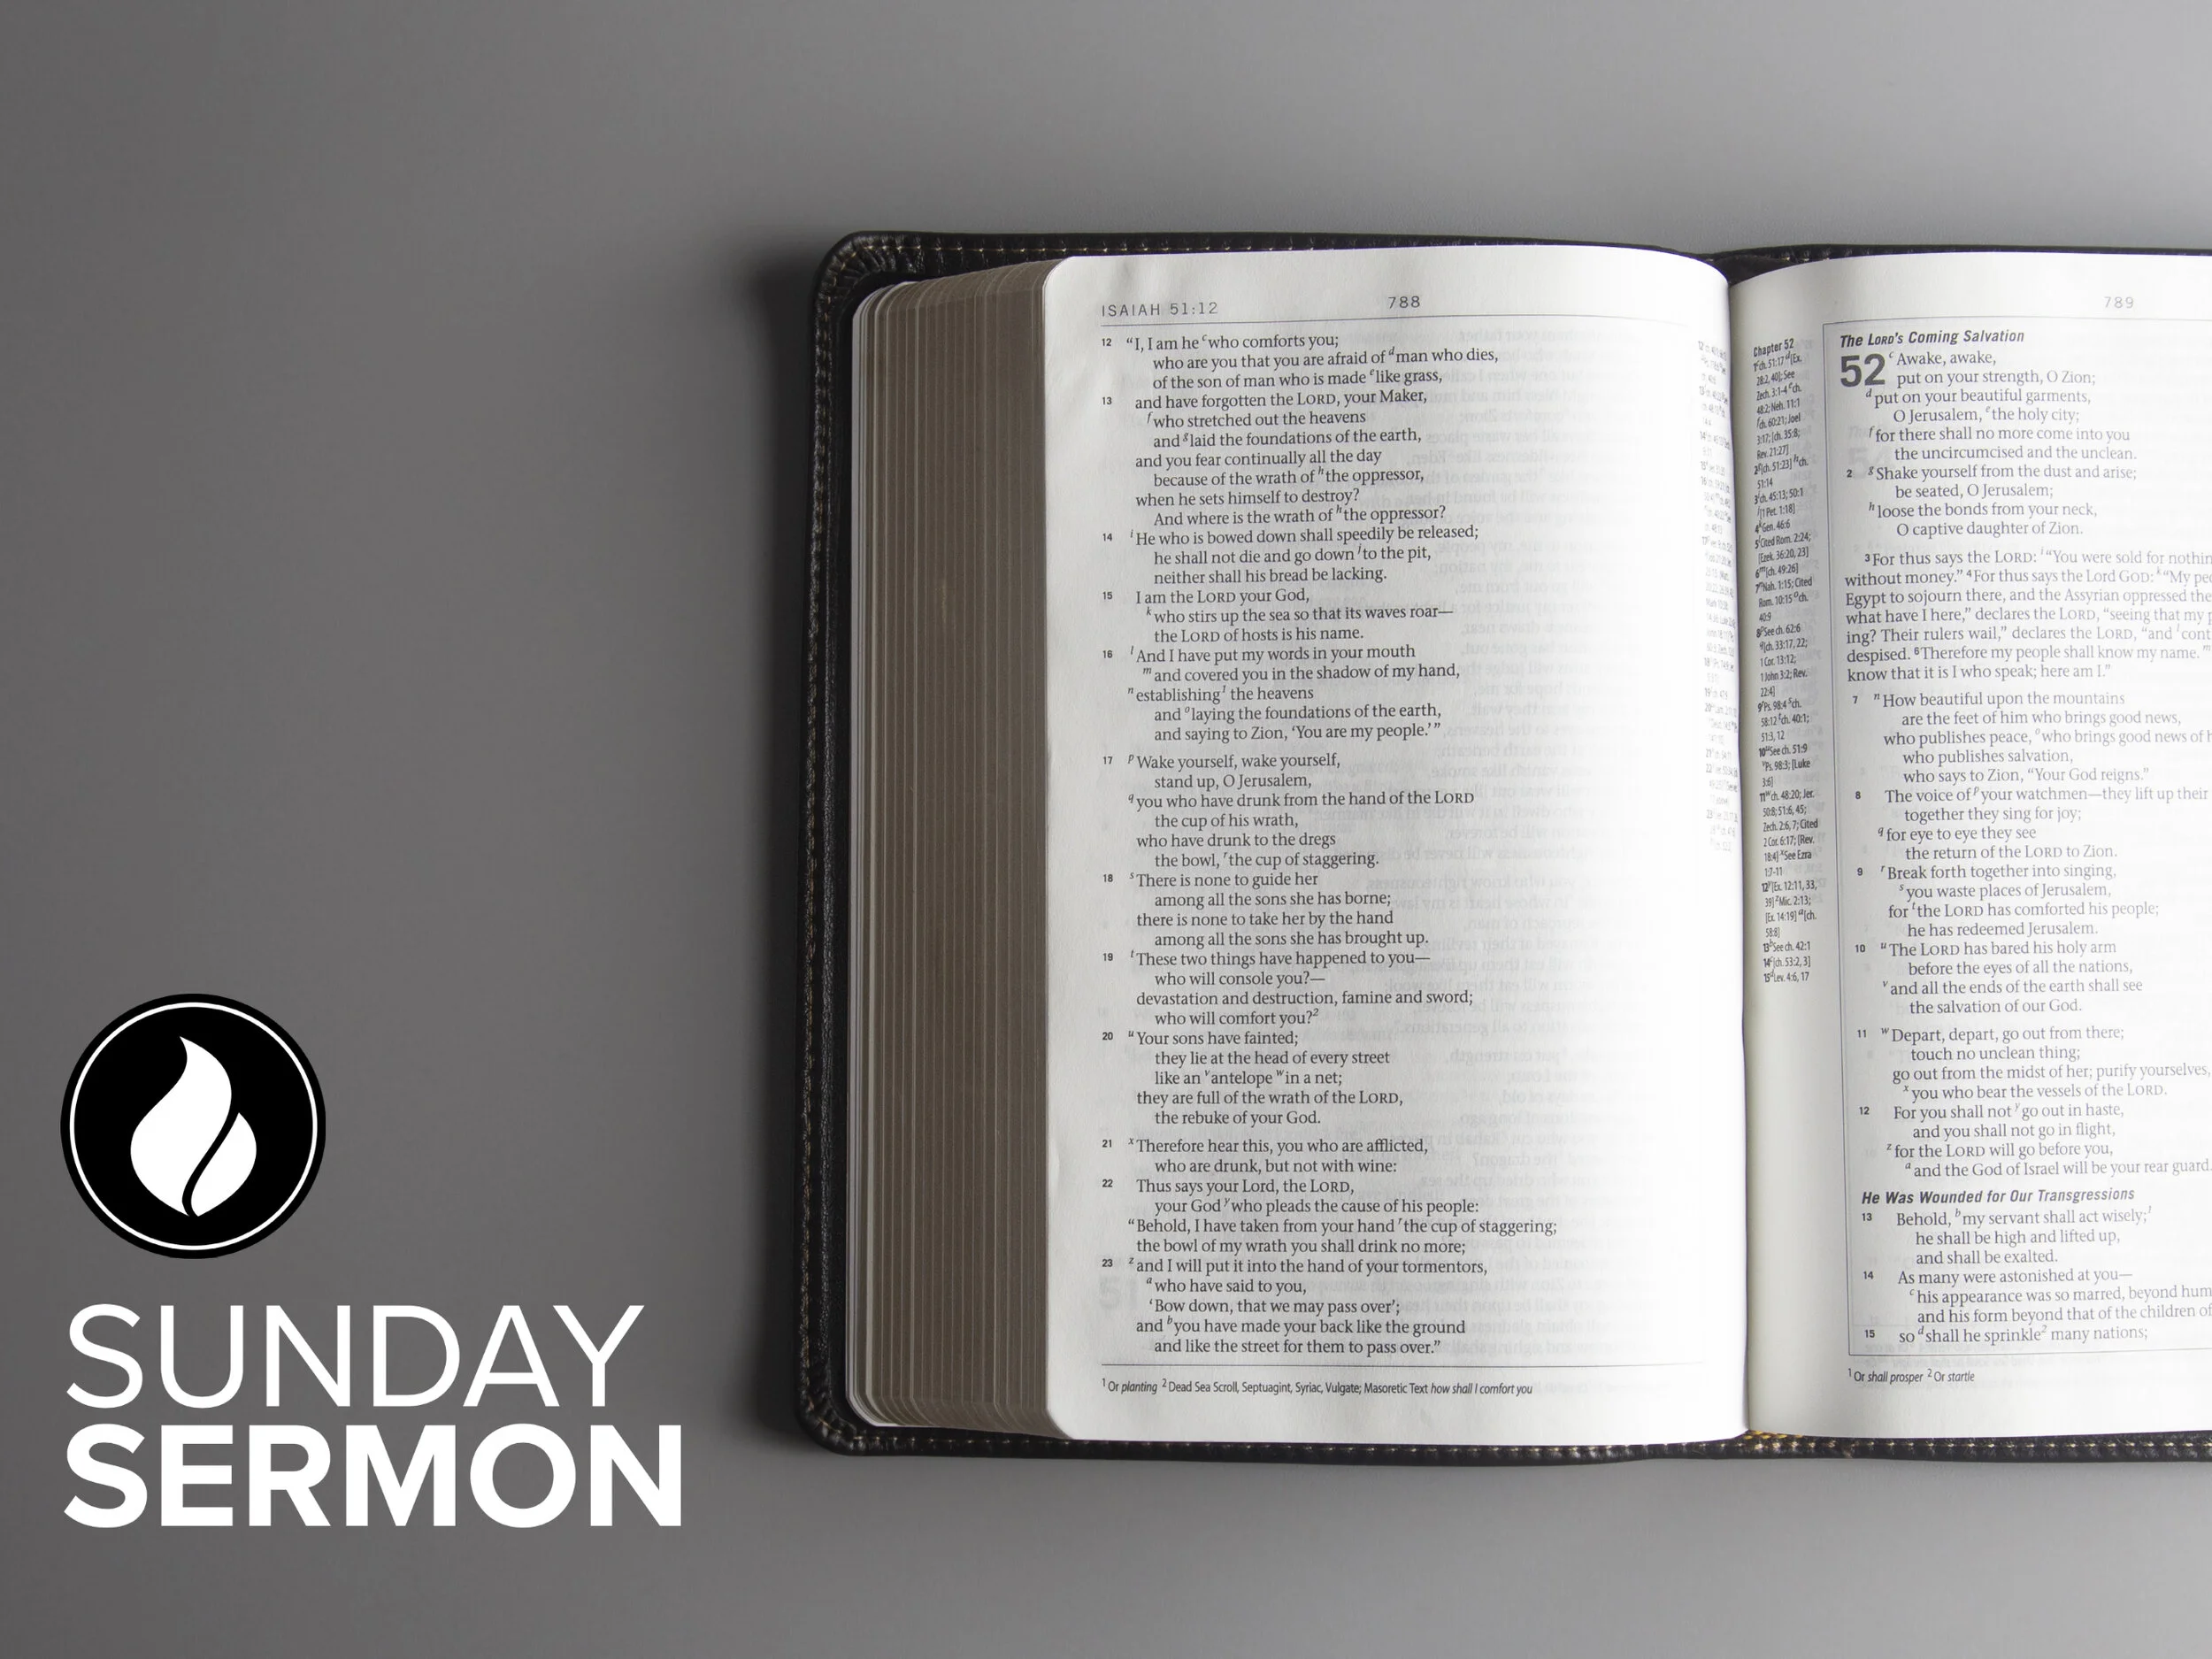 ISAIAH 51:12
788
12 “I, I am he c who comforts you;
who are you that you are afraid of d man who dies,
of the son of man who is made e like grass,
13 and have forgotten the LORD, your Maker,
f who stretched out the heavens
and g laid the foundations of the earth,
and you fear continually all the day
because of the wrath of h the oppressor,
when he sets himself to destroy?
And where is the wrath of h the oppressor?
14 i He who is bowed down shall speedily be released;
he shall not die and go down j to the pit,
neither shall his bread be lacking.
15 I am the LORD your God,
k who stirs up the sea so that its waves roar—
the LORD of hosts is his name.
16 l And I have put my words in your mouth
m and covered you in the shadow of my hand,
n establishing 1 the heavens
and o laying the foundations of the earth,
and saying to Zion, ‘You are my people.’”
17 p Wake yourself, wake yourself,
stand up, O Jerusalem,
q you who have drunk from the hand of the LORD
the cup of his wrath,
who have drunk to the dregs
the bowl, r the cup of staggering.
18 s There is none to guide her
among all the sons she has borne;
there is none to take her by the hand
among all the sons she has brought up.
19 t These two things have happened to you—
who will console you?—
devastation and destruction, famine and sword;
who will comfort you? 2
20 u Your sons have fainted;
they lie at the head of every street
like an v antelope w in a net;
they are full of the wrath of the LORD,
the rebuke of your God.
21 x Therefore hear this, you who are afflicted,
who are drunk, but not with wine:
22 Thus says your Lord, the LORD,
your God y who pleads the cause of his people:
“Behold, I have taken from your hand r the cup of staggering;
the bowl of my wrath you shall drink no more;
23 z and I will put it into the hand of your tormentors,
a who have said to you,
‘Bow down, that we may pass over’;
and b you have made your back like the ground
and like the street for them to pass over.”
1 Or planting 2 Dead Sea Scroll, Septuagint, Syriac, Vulgate; Masoretic Text how shall I comfort you
789
Chapter 52
The LORD's Coming Salvation
52 c Awake, awake,
put on your strength, O Zion;
d put on your beautiful garments,
O Jerusalem, e the holy city;
f for there shall no more come into you
the uncircumcised and the unclean.
2 g Shake yourself from the dust and arise;
be seated, O Jerusalem;
h loose the bonds from your neck,
O captive daughter of Zion.
3 For thus says the LORD: i “You were sold for
without money.” 4 For thus says the Lord GOD: k “My
Egypt to sojourn there, and the Assyrian oppressed
what have I here,” declares the LORD, “seeing that my
ing? Their rulers wail,” declares the LORD, “and l
despised. 6 Therefore my people shall know my name. m
know that it is I who speak; here am I.”
7 n How beautiful upon the mountains
are the feet of him who brings good news,
who publishes peace, o who brings good news of
who publishes salvation,
who says to Zion, “Your God reigns.”
8 The voice of p your watchmen—they lift up their
together they sing for joy;
q for eye to eye they see
the return of the LORD to Zion.
9 r Break forth together into singing,
s you waste places of Jerusalem,
for t the LORD has comforted his people;
he has redeemed Jerusalem.
10 u The LORD has bared his holy arm
before the eyes of all the nations,
v and all the ends of the earth shall see
the salvation of our God.
11 w Depart, depart, go out from there;
touch no unclean thing;
go out from the midst of her; purify yourselves,
x you who bear the vessels of the LORD.
12 For you shall not y go out in haste,
and you shall not go in flight,
z for the LORD will go before you,
a and the God of Israel will be your rear guard.
He Was Wounded for Our Transgressions
13 Behold, b my servant shall act wisely; 1
he shall be high and lifted up,
and shall be exalted.
14 As many were astonished at you—
c his appearance was so marred, beyond
and his form beyond that of the children of
15 so d shall he sprinkle 2 many nations;
1 Or shall prosper 2 Or startle
SUNDAY
SERMON